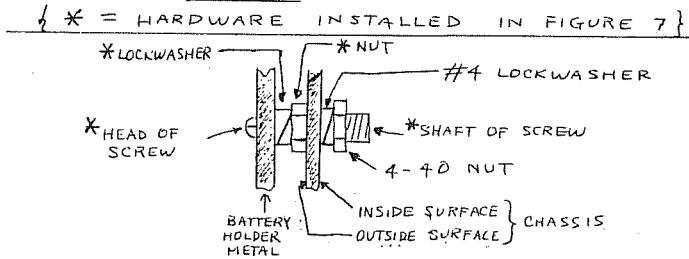 { * = HARDWARE INSTALLED IN FIGURE 7 }
*LOCKWASHER
*NUT
#4 LOCKWASHER
*HEAD OF
SCREW
*SHAFT OF
SCREW
4-40 NUT
BATTERY
HOLDER
METAL
INSIDE SURFACE
OUTSIDE SURFACE
} CHASSIS